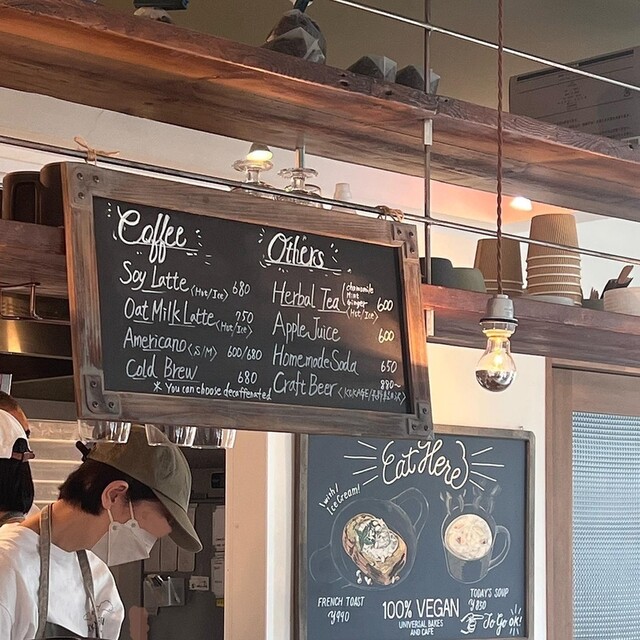 Coffee
Soy Latte (Hot/Ice) 680
Oat Milk Latte (Hot/Ice) 750
Americano (S/M) 600/680
Cold Brew 680
* You can choose decaffeinated
Others
Herbal Tea (chamomile
mint
ginger
(Hot/Ice) 600
Apple Juice 600
Homemade Soda 650
Craft Beer 880~
Eat Here!
\with/
Ice Cream!
FRENCH TOAST
¥990
100% VEGAN
UNIVERSAL BAKES
AND CAFE
TODAY'S SOUP
¥850
To Go ok!